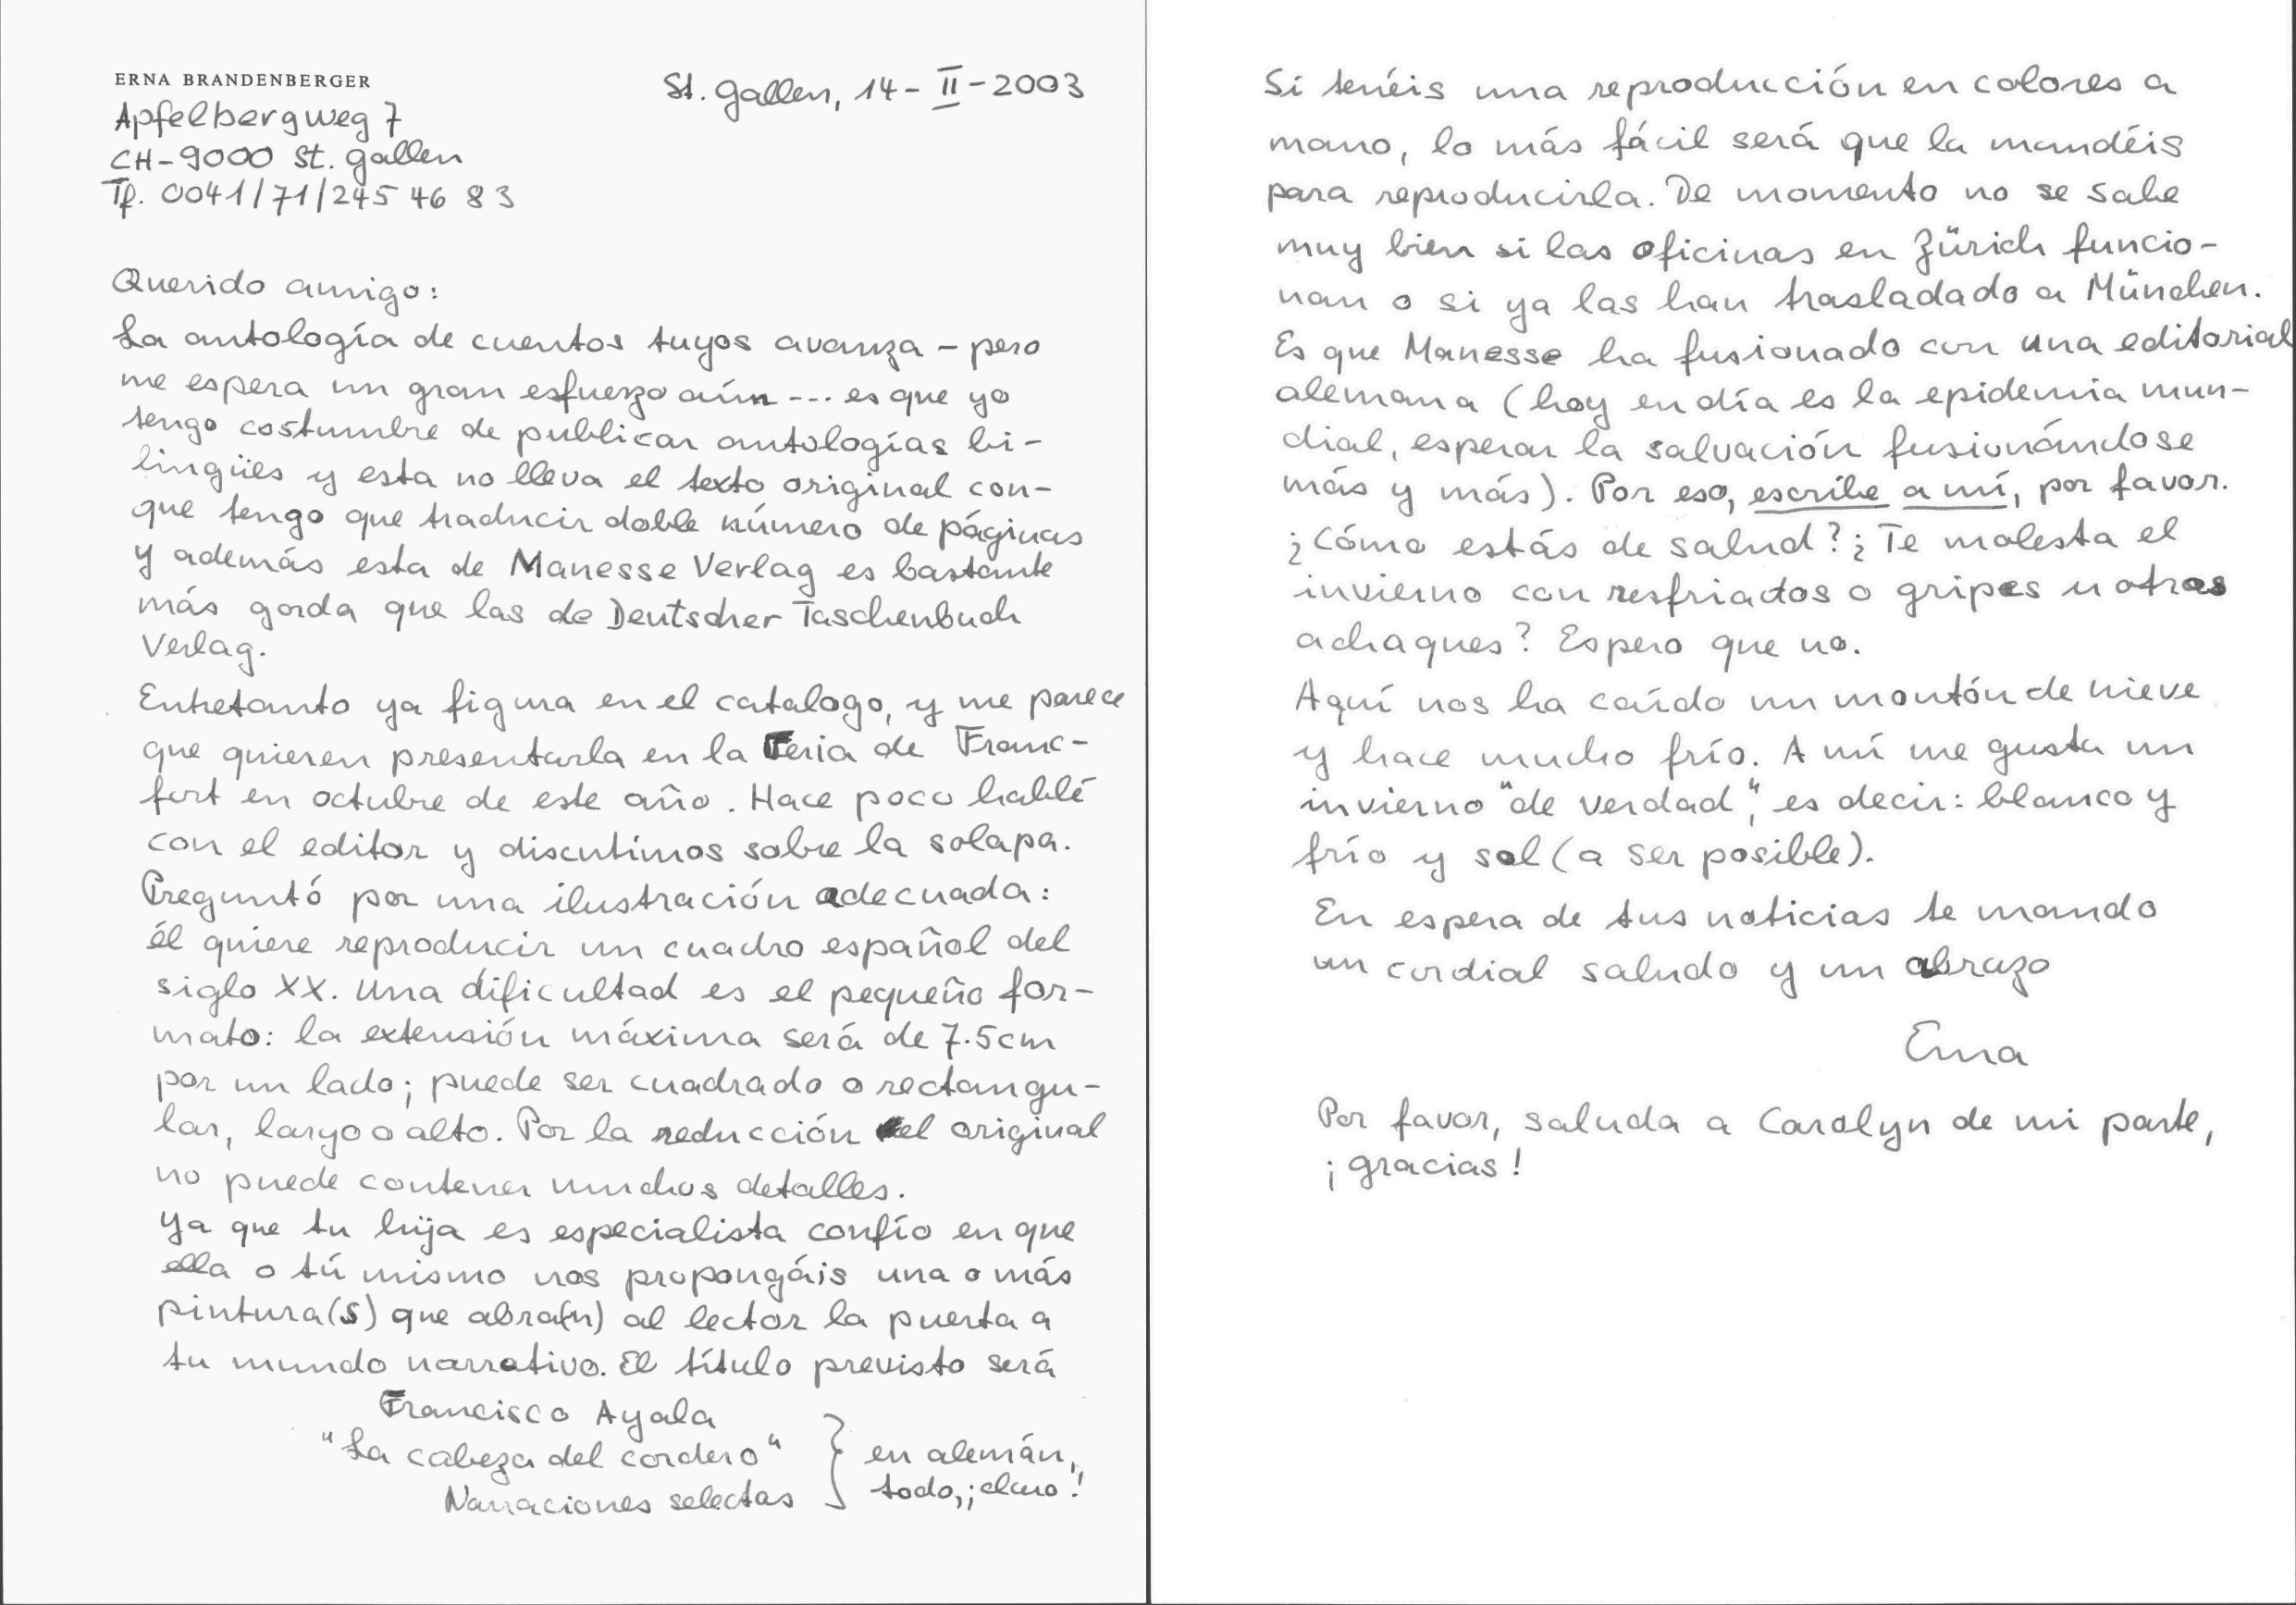 ERNA BRANDENBERGER
St. Gallen, 14-II-2003
Apfelbergweg 7
CH-9000 St. Gallen
Tf. 0041/71/245 46 83
Querido amigo:
La antología de cuentos tuyos avanza - pero
me espera un gran esfuerzo aún --- es que yo
tengo costumbre de publicar antologías bi-
lingües y esta no lleva el texto original con-
que tengo que traducir doble número de páginas
y además esta de Manesse Verlag es bastante
más gorda que las de Deutscher Taschenbuch
Verlag.
Entretanto ya figura en el catalogo, y me parece
que quieren presentarla en la Feria de Franc-
fort en octubre de este año. Hace poco hablé
con el editor y discutimos sobre la solapa.
Preguntó por una ilustración adecuada:
él quiere reproducir un cuadro español del
siglo XX. Una dificultad es el pequeño for-
mato: la extensión máxima será de 7.5cm
por un lado; puede ser cuadrado o rectangu-
lar, largo o alto. Por la reducción el original
no puede contener muchos detalles.
Ya que tu hija es especialista confío en que
ella o tú mismo nos propongáis una o más
pintura(s) que abra(n) al lector la puerta a
tu mundo narrativo. El título previsto será
Francisco Ayala
"La cabeza del cordero" } en alemán,
Narraciones selectas todo, ¡claro!
Si tenéis una reproducción en colores a
mano, lo más fácil será que la mandéis
para reproducirla. De momento no se sabe
muy bien si las oficinas en Zürich funcio-
nan o si ya las han trasladado a München.
Es que Manesse ha fusionado con una editorial
alemana (hoy en día es la epidemia mun-
dial, esperar la salvación fusionándose
más y más). Por eso, escribe a mí, por favor.
¿Cómo estás de salud? ¿Te molesta el
invierno con resfriados o gripes u otras
achaques? Espero que no.
Aquí nos ha caído un montón de nieve
y hace mucho frío. A mí me gusta un
invierno "de verdad", es decir: blanco y
frío y sol (a ser posible).
En espera de tus noticias te mando
un cordial saludo y un abrazo
Erna
Por favor, saluda a Carolyn de mi parte,
¡gracias!